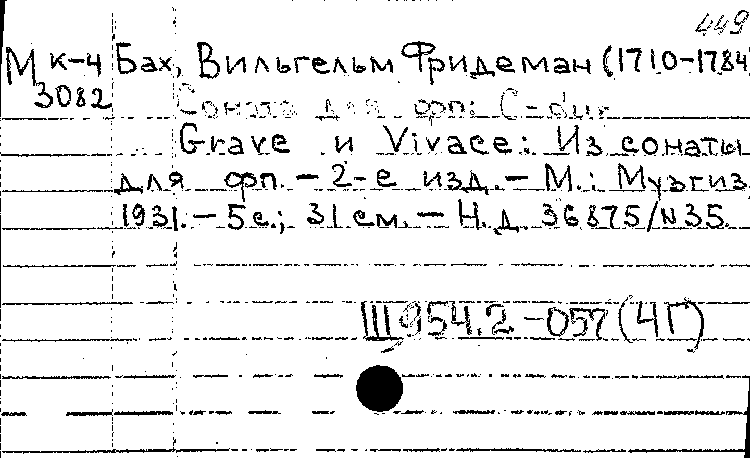 449
М к-4 Бах, Вильгельм Фридеман (1710-1784
3082
Соната для фп: C-dur
Grave и Vivace: Из сонаты
для фп. - 2-е изд. - М.: Музгиз
1931. - 5 с.; 31 см. - Н.д. 36875/N35.
III 954.2-057 (4Г)